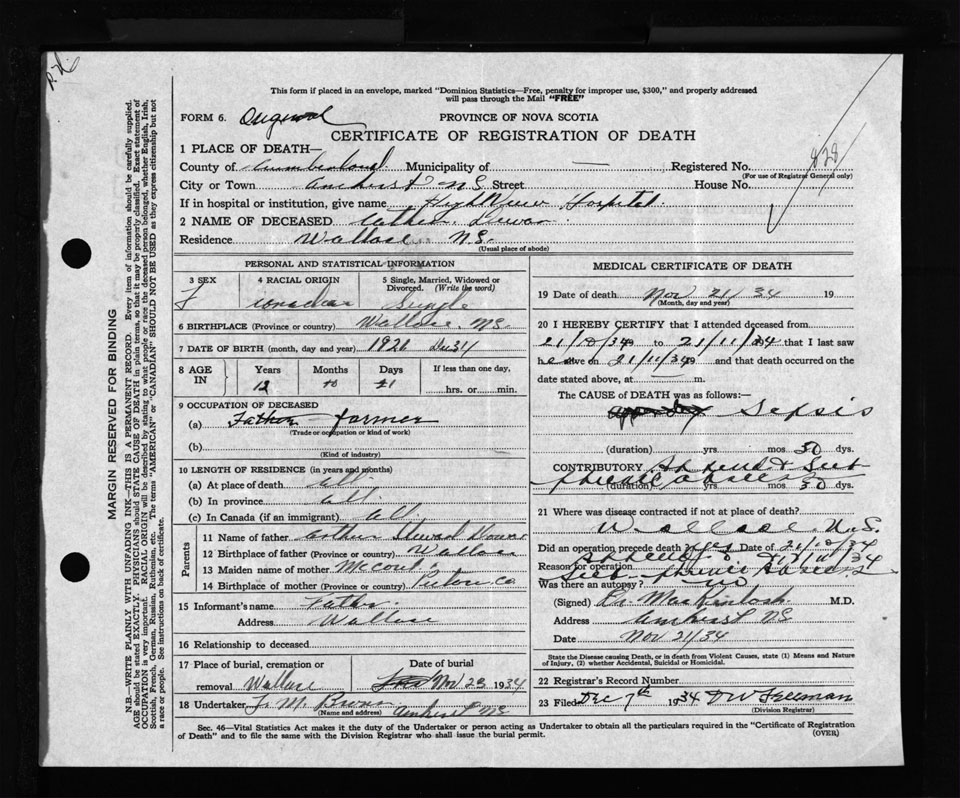 This form if placed in an envelope, marked "Dominion Statistics—Free, penalty for improper use, $300," and properly addressed
will pass through the Mail "FREE"
FORM 6. Original PROVINCE OF NOVA SCOTIA
CERTIFICATE OF REGISTRATION OF DEATH
1 PLACE OF DEATH—
County of Cumberland Municipality of — Registered No. 828
(For use of Registrar General only)
City or Town Amherst NS Street House No.
If in hospital or institution, give name Highview Hospital.
2 NAME OF DECEASED Dewar
Residence Wallace N.S.
(Usual place of abode)
PERSONAL AND STATISTICAL INFORMATION
3 SEX F
4 RACIAL ORIGIN Canadian
5 Single, Married, Widowed or Divorced. (Write the word) Single
6 BIRTHPLACE (Province or country) Wallace, NS.
7 DATE OF BIRTH (month, day and year) 192 Dec 31
8 AGE IN Years Months Days If less than one day,
12 10 21 hrs. or min.
9 OCCUPATION OF DECEASED
(a) Father farmer
(Trade or occupation or kind of work)
(b)
(Kind of industry)
10 LENGTH OF RESIDENCE (in years and months)
(a) At place of death all.
(b) In province all.
(c) In Canada (if an immigrant) all.
Parents
11 Name of father Arthur Dewar
12 Birthplace of father (Province or country) Wallace
13 Maiden name of mother
14 Birthplace of mother (Province or country) Pictou Co
15 Informant's name Father.
Address Wallace
16 Relationship to deceased
17 Place of burial, cremation or removal Wallace
Date of burial Nov 23 1934
18 Undertaker J. M. Amherst NS
(Name and address)
MEDICAL CERTIFICATE OF DEATH
19 Date of death Nov 21/34 19
(Month, day and year)
20 I HEREBY CERTIFY that I attended deceased from
21/10/34 to 21/11/34 that I last saw
h e alive on 21/11/34 and that death occurred on the
date stated above, at m.
The CAUSE of DEATH was as follows:—
Sepsis
(duration) yrs mos 30 dys.
CONTRIBUTORY & Sub
phrenic abscess
(duration) yrs mos 30 dys.
21 Where was disease contracted if not at place of death?
Wallace N.S.
Did an operation precede death? yes Date of 21/10/34
Reason for operation 27/10/34
Sub phrenic abscess
Was there an autopsy? no
(Signed) Dr. MacKintosh M.D.
Address Amherst NS
Date Nov 21/34
State the Disease causing Death, or in death from Violent Causes, state (1) Means and Nature
of Injury, (2) whether Accidental, Suicidal or Homicidal.
22 Registrar's Record Number
23 Filed Dec 7th 1934 D W Freeman
(Division Registrar)
Sec. 46—Vital Statistics Act makes it the duty of the Undertaker or person acting as Undertaker to obtain all the particulars required in the "Certificate of Registration
of Death" and to file the same with the Division Registrar who shall issue the burial permit.
(OVER)
MARGIN RESERVED FOR BINDING
N.B.—WRITE PLAINLY WITH UNFADING INK—THIS IS A PERMANENT RECORD. Every item of information should be carefully supplied.
AGE should be stated EXACTLY. PHYSICIANS should STATE CAUSE OF DEATH in plain terms, so that it may be properly classified. Exact statement of
OCCUPATION is very important. RACIAL ORIGIN will be described by stating to what people or race the deceased person belonged, whether English, Irish,
Scottish, French, German, Russian, Ruthenian, etc. The terms "AMERICAN" or "CANADIAN" SHOULD NOT BE USED as they express citizenship but not
a race or people. See instructions on back of certificate.